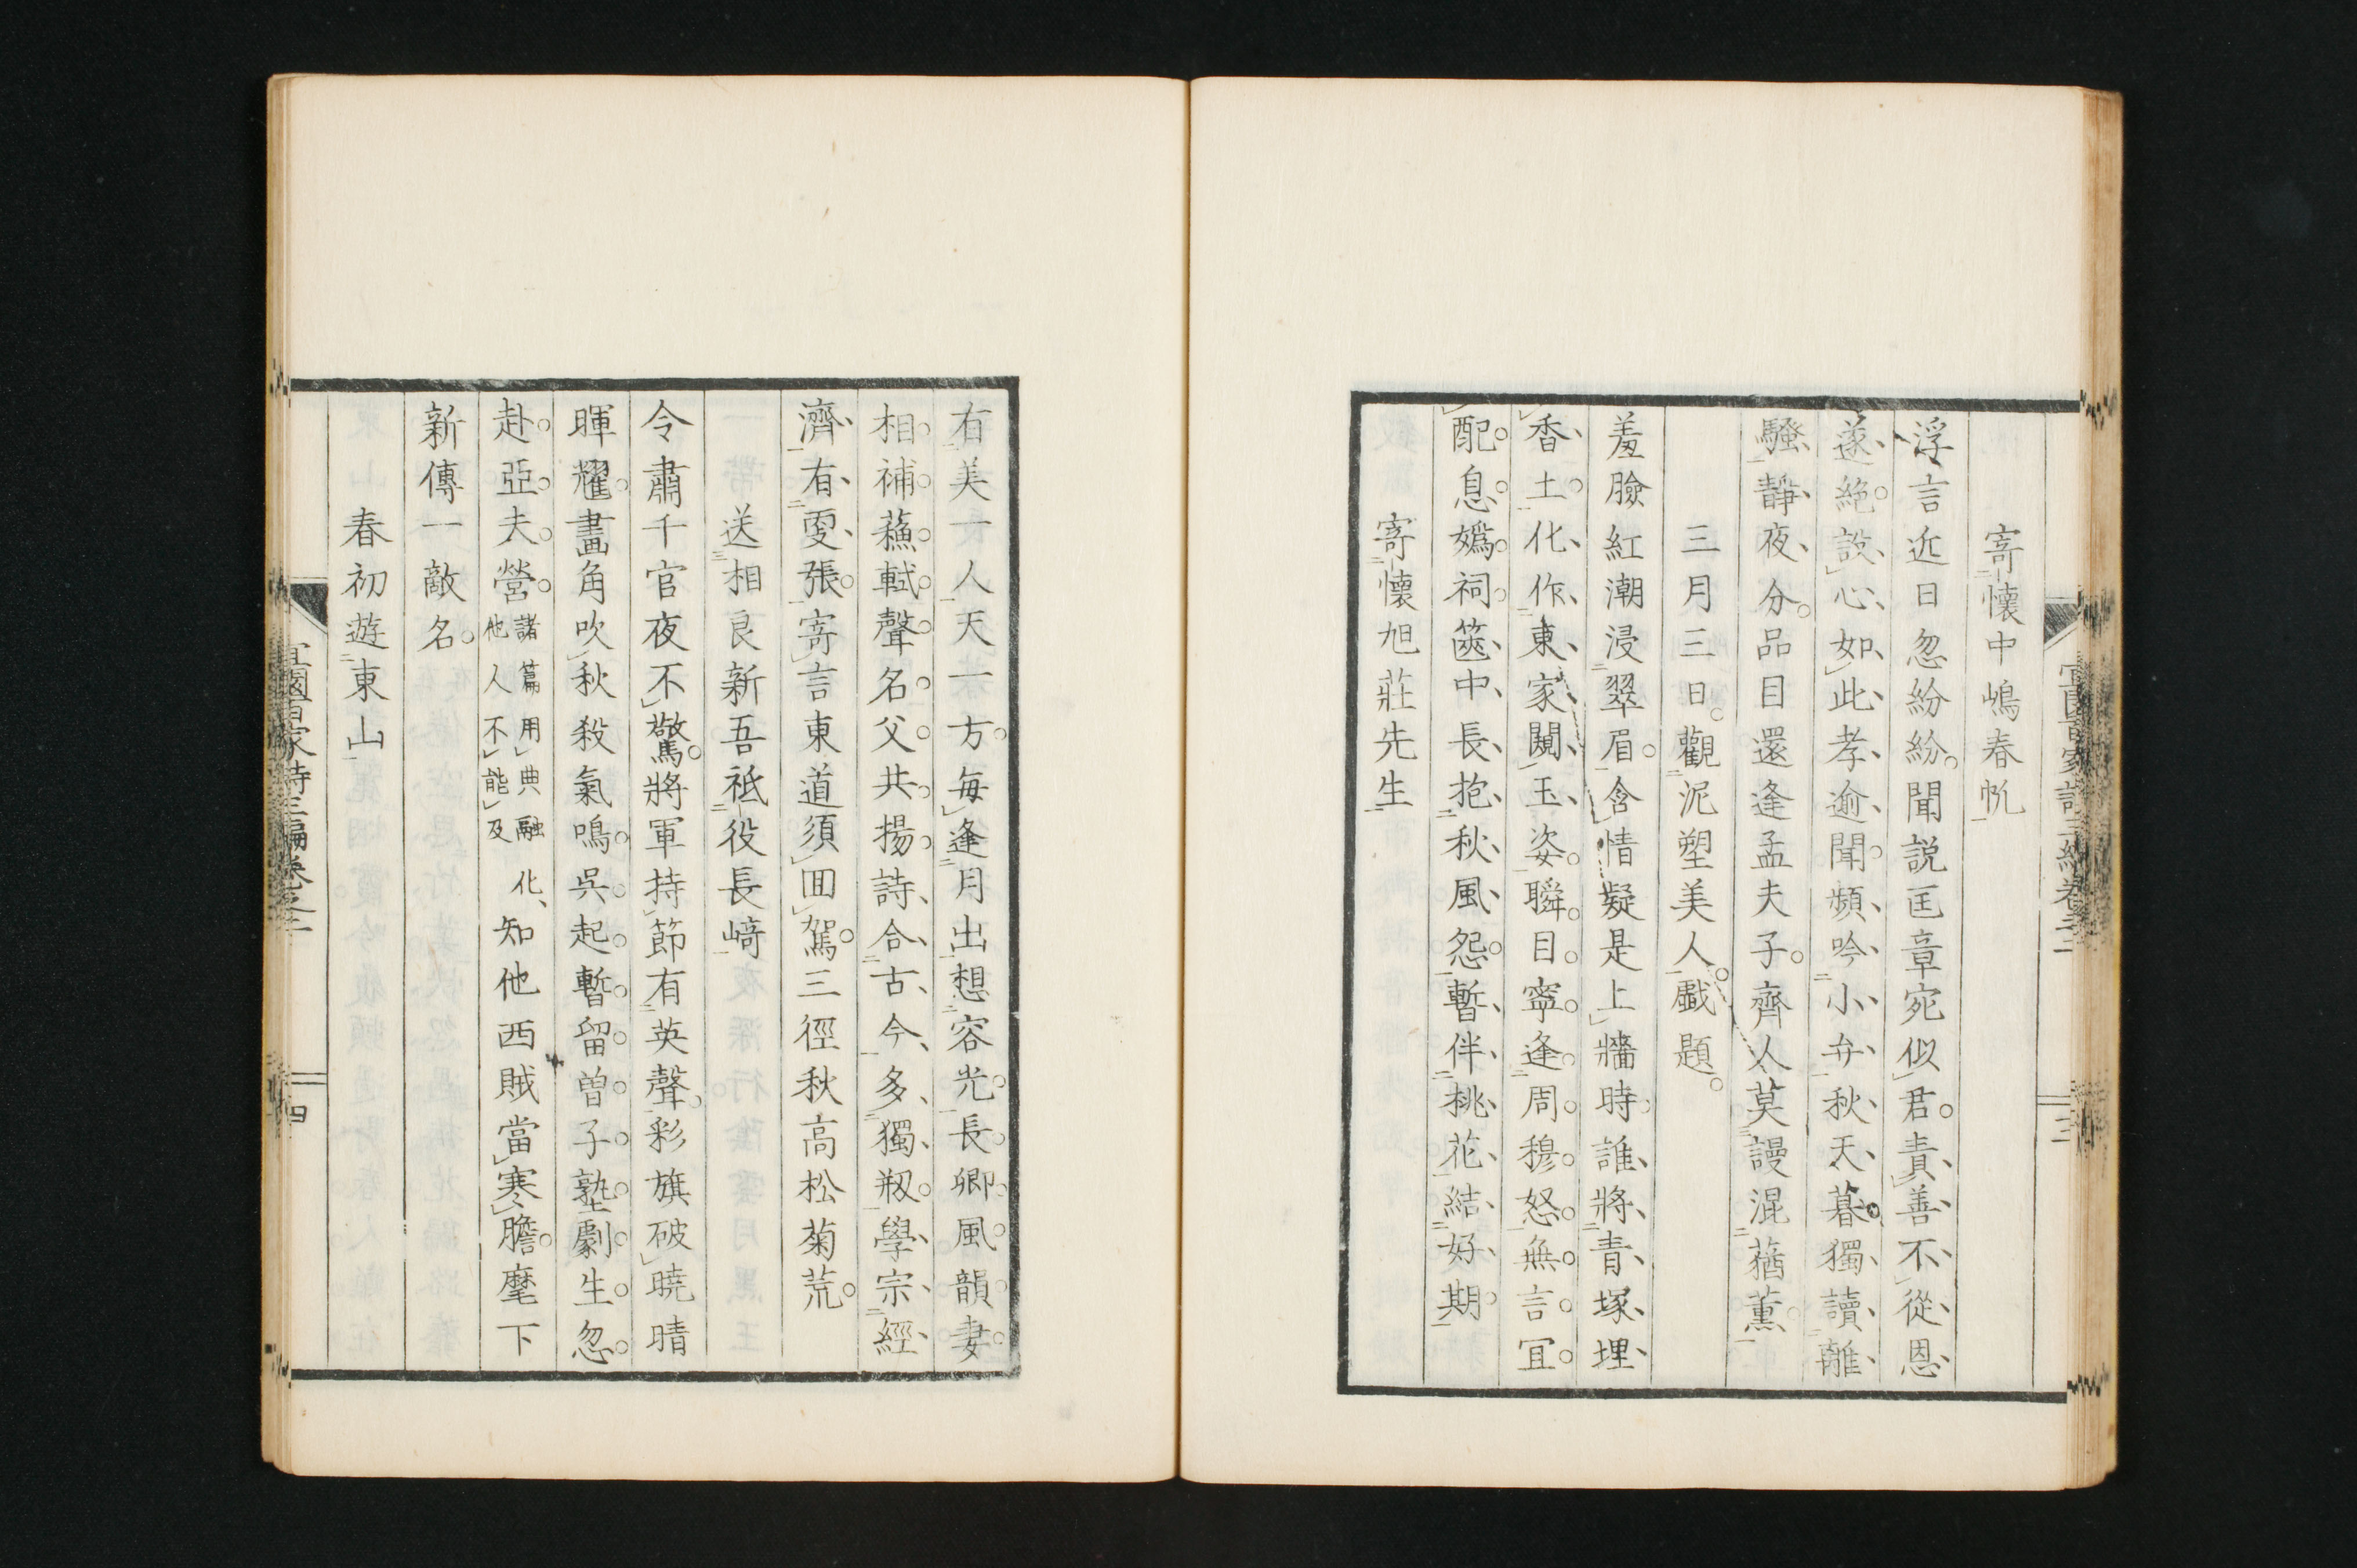 寄懷中嶋春帆
浮言近日忽紛紛。聞説匡章宛似君。責善不從恩
遂絶。設心如此孝逾聞。頻吟小弁秋天暮。獨讀離
騷靜夜分。品目還逢孟夫子。齊人莫謾混蕕薰。
三月三日。觀泥塑美人。戲題。
羞臉紅潮浸翠眉。含情疑是上牆時。誰將青塚埋
香土。化作東家闚玉姿。瞬目寧逢周穆怒。無言冝
配息嬀祠。篋中長抱秋風怨。暫伴桃花結好期。
寄懷旭莊先生
宜園百家詩三編卷之二
三
有美一人天一方。毎逢月出想容光。長卿風韻妻
相補。蘓軾聲名父共揚。詩合古今多獨剏。學宗經
濟有更張。寄言東道須囬駕。三徑秋高松菊荒。
送相良新吾祗役長﨑
令肅千官夜不驚。將軍持節有英聲。彩旗破曉晴
暉耀。畫角吹秋殺氣鳴。呉起暫留曽子塾。劇生忽
赴亞夫營。諸篇用典融化、他人不能及知他西賊當寒膽。麾下
新傳一敵名。
春初遊東山
宜園百家詩三編卷之二
四